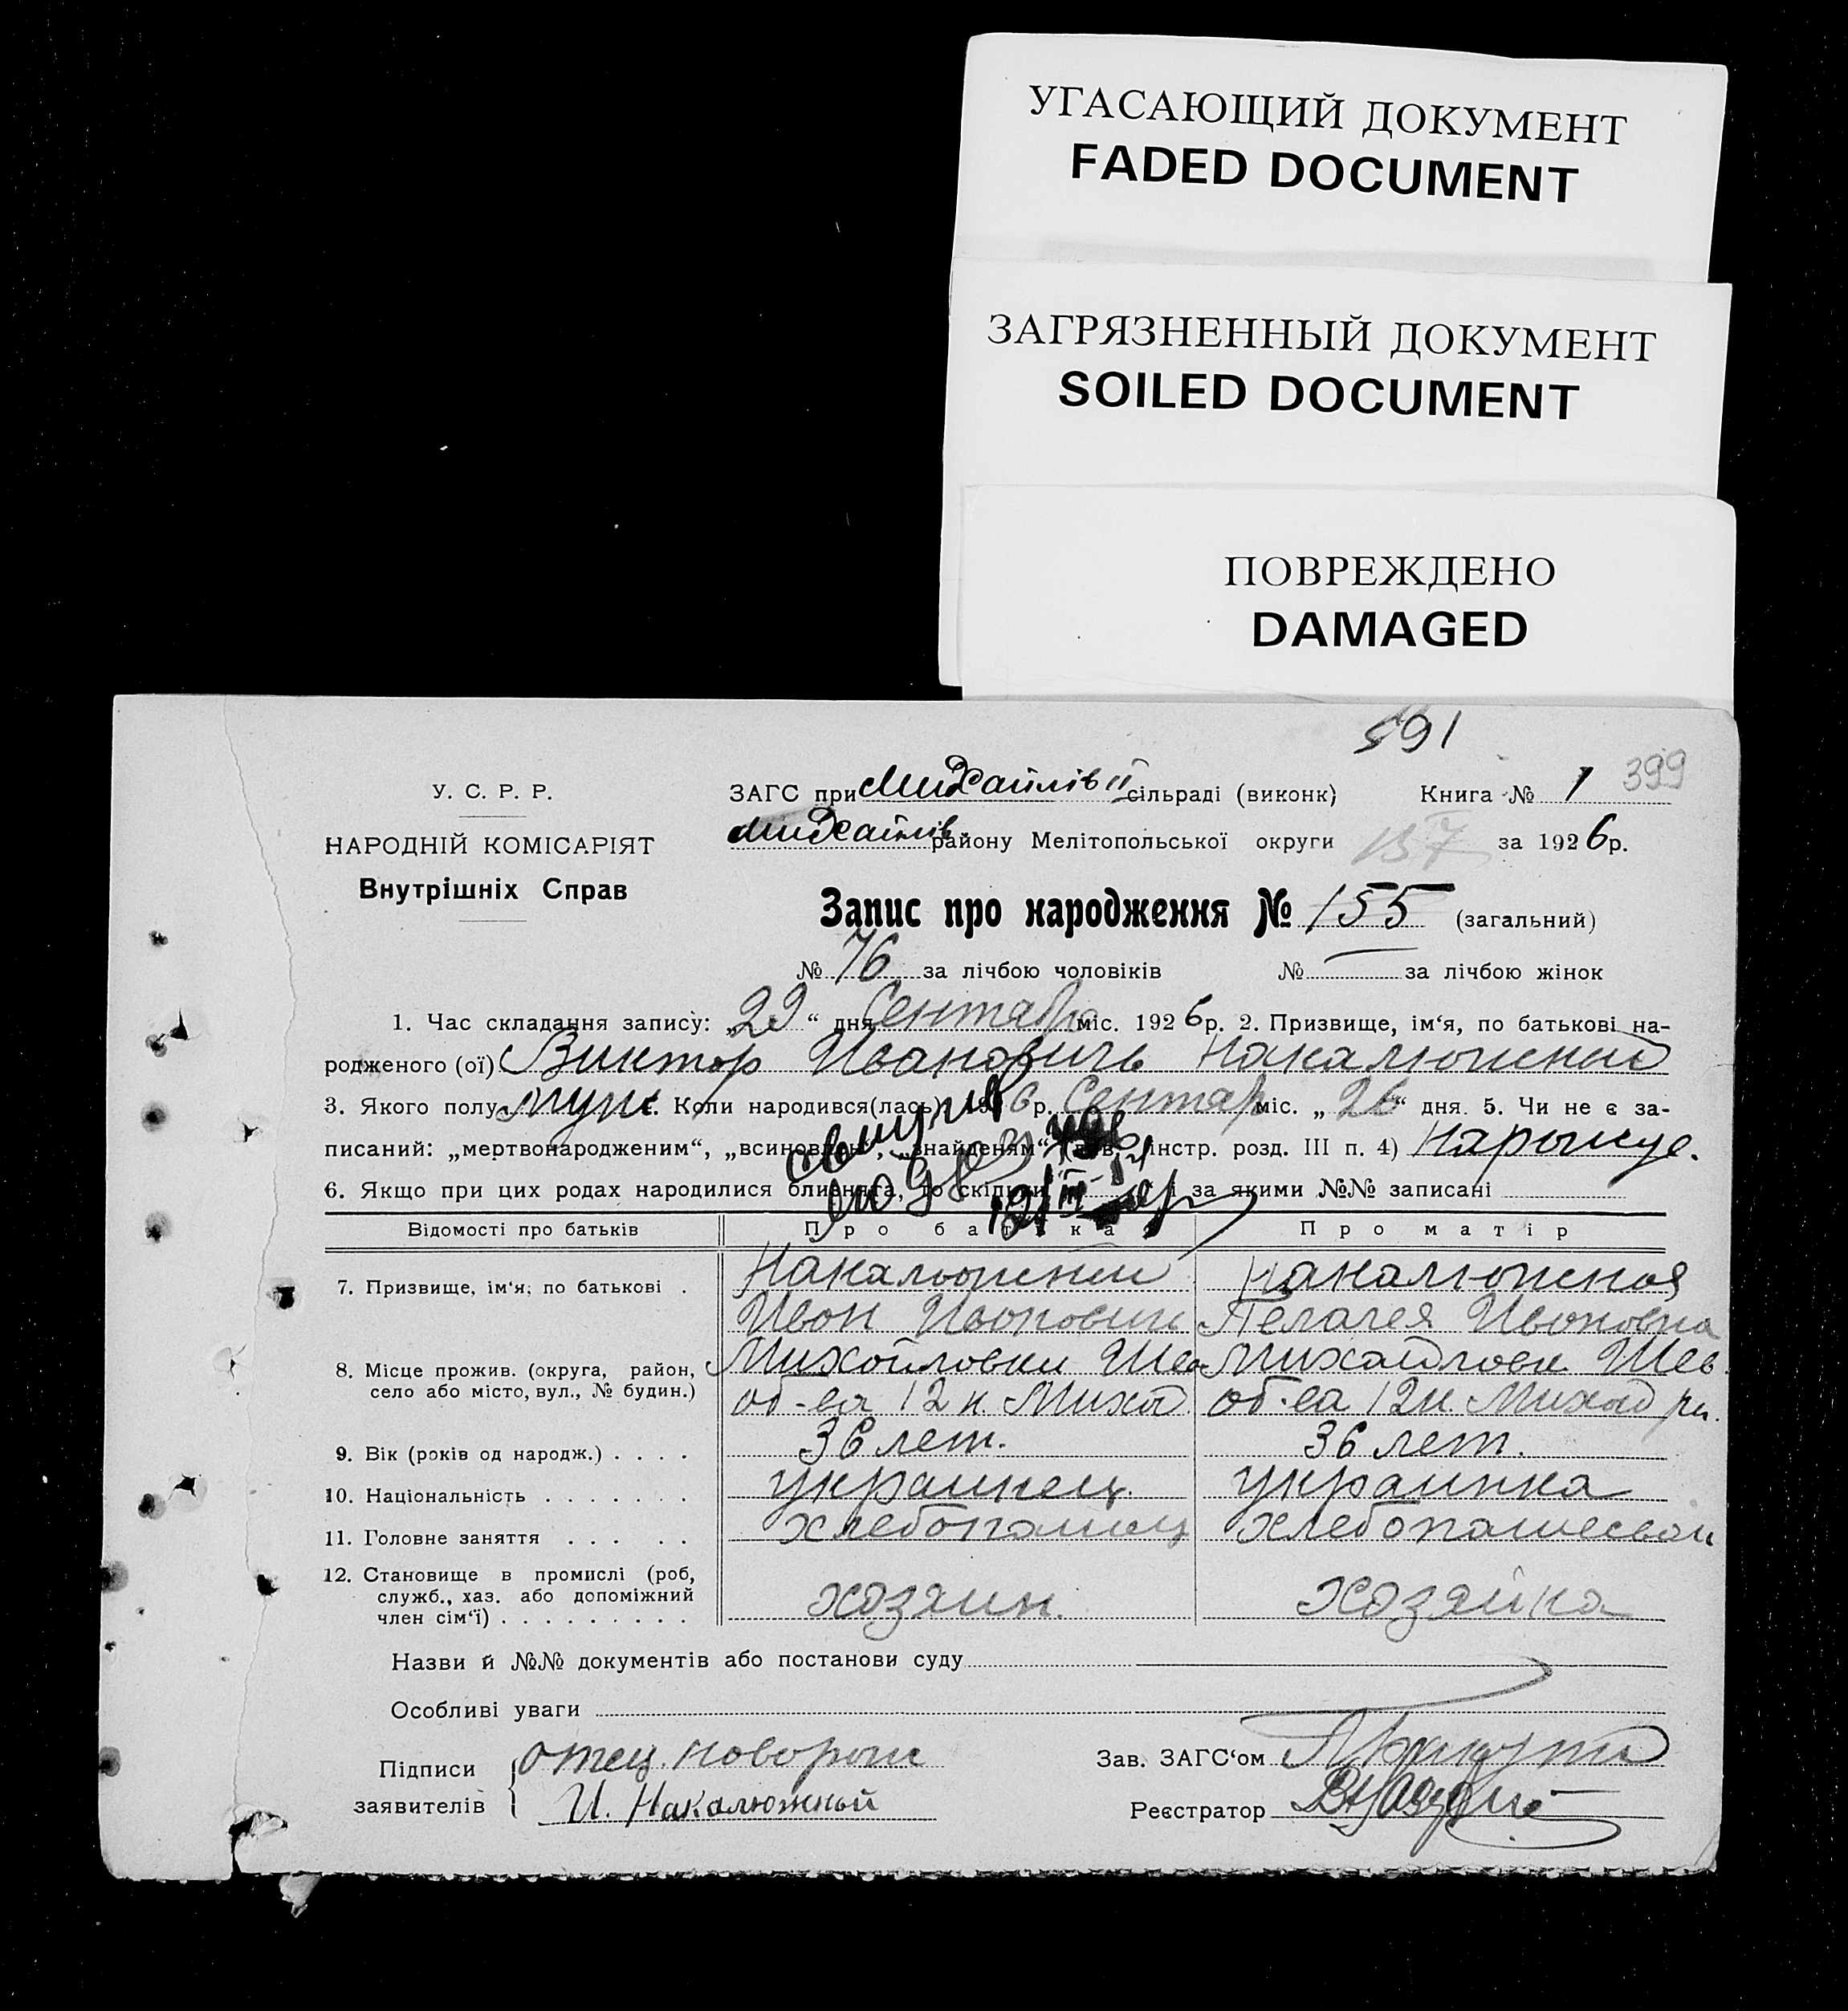 УГАСАЮЩИЙ ДОКУМЕНТ
FADED DOCUMENT
ЗАГРЯЗНЕННЫЙ ДОКУМЕНТ
SOILED DOCUMENT
ПОВРЕЖДЕНО
DAMAGED
591
399
У. С. Р. Р.
НАРОДНІЙ КОМІСАРІЯТ
Внутрішніх Справ
ЗАГС при Михайлів II сільраді (виконк) Книга № 1
Михайлів району Мелітопольської округи 157 за 1926 р.
Запис про народження № 155 (загальний)
№ 76 за лічбою чоловіків № — за лічбою жінок
1. Час складання запису: „29“ дня Сентабра міс. 1926 р. 2. Призвище, ім‘я, по батькові на-
родженого (ої) Виктор Ивановичь Накалюжный
3. Якого полу муж. Коли народився(лась) 6 р. Сентяр міс. „26“ дня. 5. Чи не є за-
писаний: „мертвонародженим“, „всиновлен“, „знайденям“ Інстр. розд. III п. 4)
6. Якщо при цих родах народилися близнята, то скільки і за якими №№ записані
Відомості про батьків Про батька Про матір
7. Призвище, ім‘я, по батькові . Накалюжный Накалюжная
Ивон Ивонович Пелагея Ивоновна
8. Місце прожив. (округа, район,
село або місто, вул., № будин.)
об-ва 12 к. об-ва 12 к.
9. Вік (років од народж.) . . . . 36 лет. 36 лет.
10. Національність . . . . . . . украинец украинка
11. Головне заняття . . . . . хлебопашец
12. Становище в промислі (роб,
служб., хаз. або допоміжний
член сім‘ї) . . . . . . . . . хозяин. хозяйка
Назви й №№ документів або постанови суду
Особливі уваги
Підписи отец новорож
заявителів И. Накалюжный
Зав. ЗАГС‘ом
Реєстратор